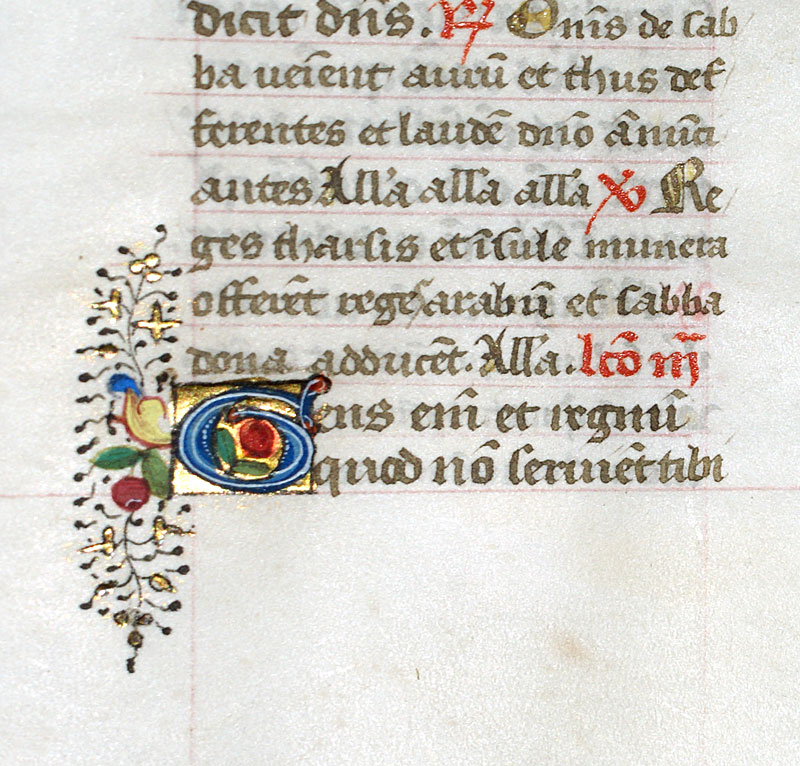 dicit dn̄s. ℟ Om̄s de sab
ba ueīent aurū et thus def
ferentes et laudē dn̄o ānūci
antes All'a all'a all'a ℣ Re
ges tharsis et īsule munera
offerēt reges arabū et sabba
dona adducēt. All'a. lc̄o iij
Gens em̄ et regnū
quod nō seruiēt tibi